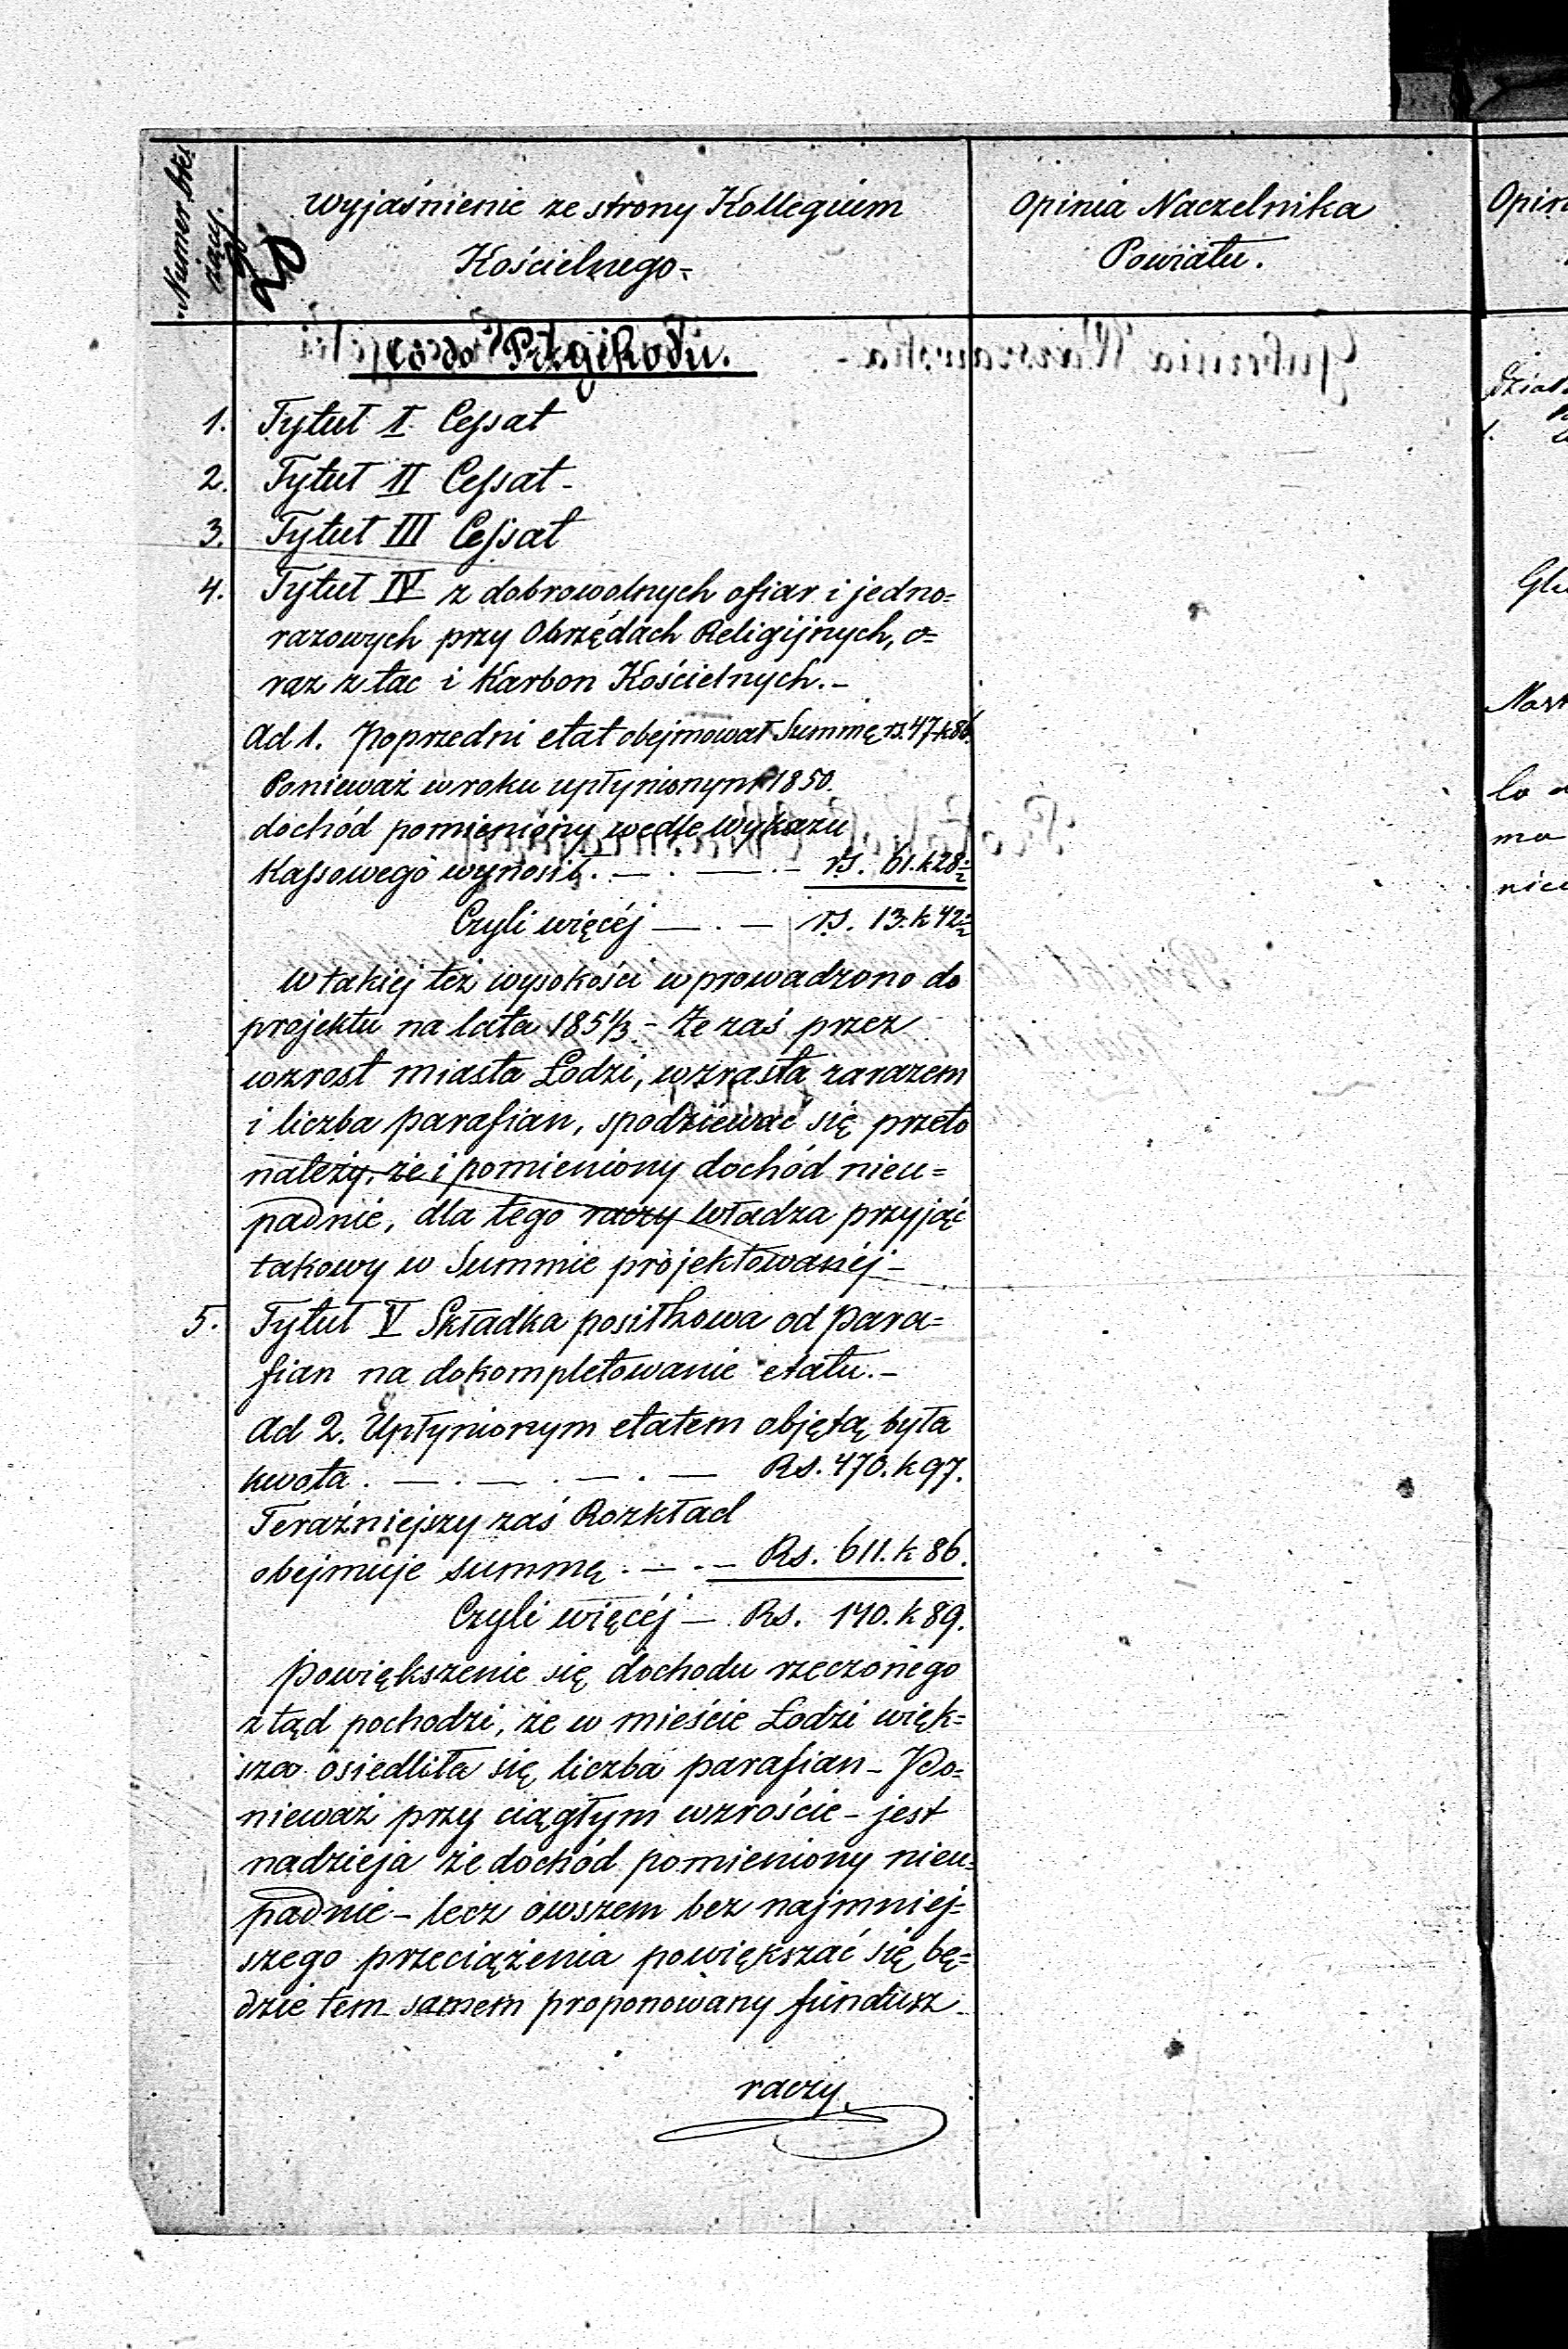 Numer bie
żący.
20
Wyjaśnienie ze strony Kollegium
Kościelnego -
Opinia Naczelnika
Powiatu.
Co do Przychodu.
1. Tytuł I Cessat
2. Tytuł II Cessat -
3. Tytuł III Cessat
4. Tytuł IV z dobrowolnych ofiar i jedno=
razowych przy Obrzędach Religijnych, o=
raz z tac i Karbon Kościelnych. -
Ad 1. Poprzedni etat obejmował Summę rs. 47 k 86.
Ponieważ w roku upłynionym 1850.
dochód pomieniony wedle wykazu
Kassowego wynosił. — . — . — rs. 61. k 28 1/2
Czyli więcéj — . — rs. 13. k 42 1/2
W takiej też wysokości wprowadzono do
projektu na lata 1851/3 - Że zaś przez
wzrost miasta Łodzi, wzrasta zarazem
i liczba parafian, spodziewać się przeto
należy, że i pomieniony dochód nieu=
padnie, dla tego raczy Władza przyjąć
takowy w Summie projektowanéj -
5. Tytuł V Składka posiłkowa od para=
fian na dokompletowanie etatu. -
Ad 2. Upłynionym etatem objętą była
kwota . — . — . — . — Rs. 470. k 97.
Teraźniejszy zaś Rozkład
obejmuje summę . — . — Rs. 611. k 86.
Czyli więcéj — Rs. 140. k 89.
Powiększenie się dochodu rzeczonego
ztąd pochodzi, że w mieście Łodzi więk=
sza osiedliła się liczba parafian - Po=
nieważ przy ciągłym wzroście - jest
nadzieja że dochód pomieniony nieu=
padnie - lecz owszem bez najmniej=
szego przeciążenia powiększać się bę=
dzie tem samem proponowany fundusz
raczy